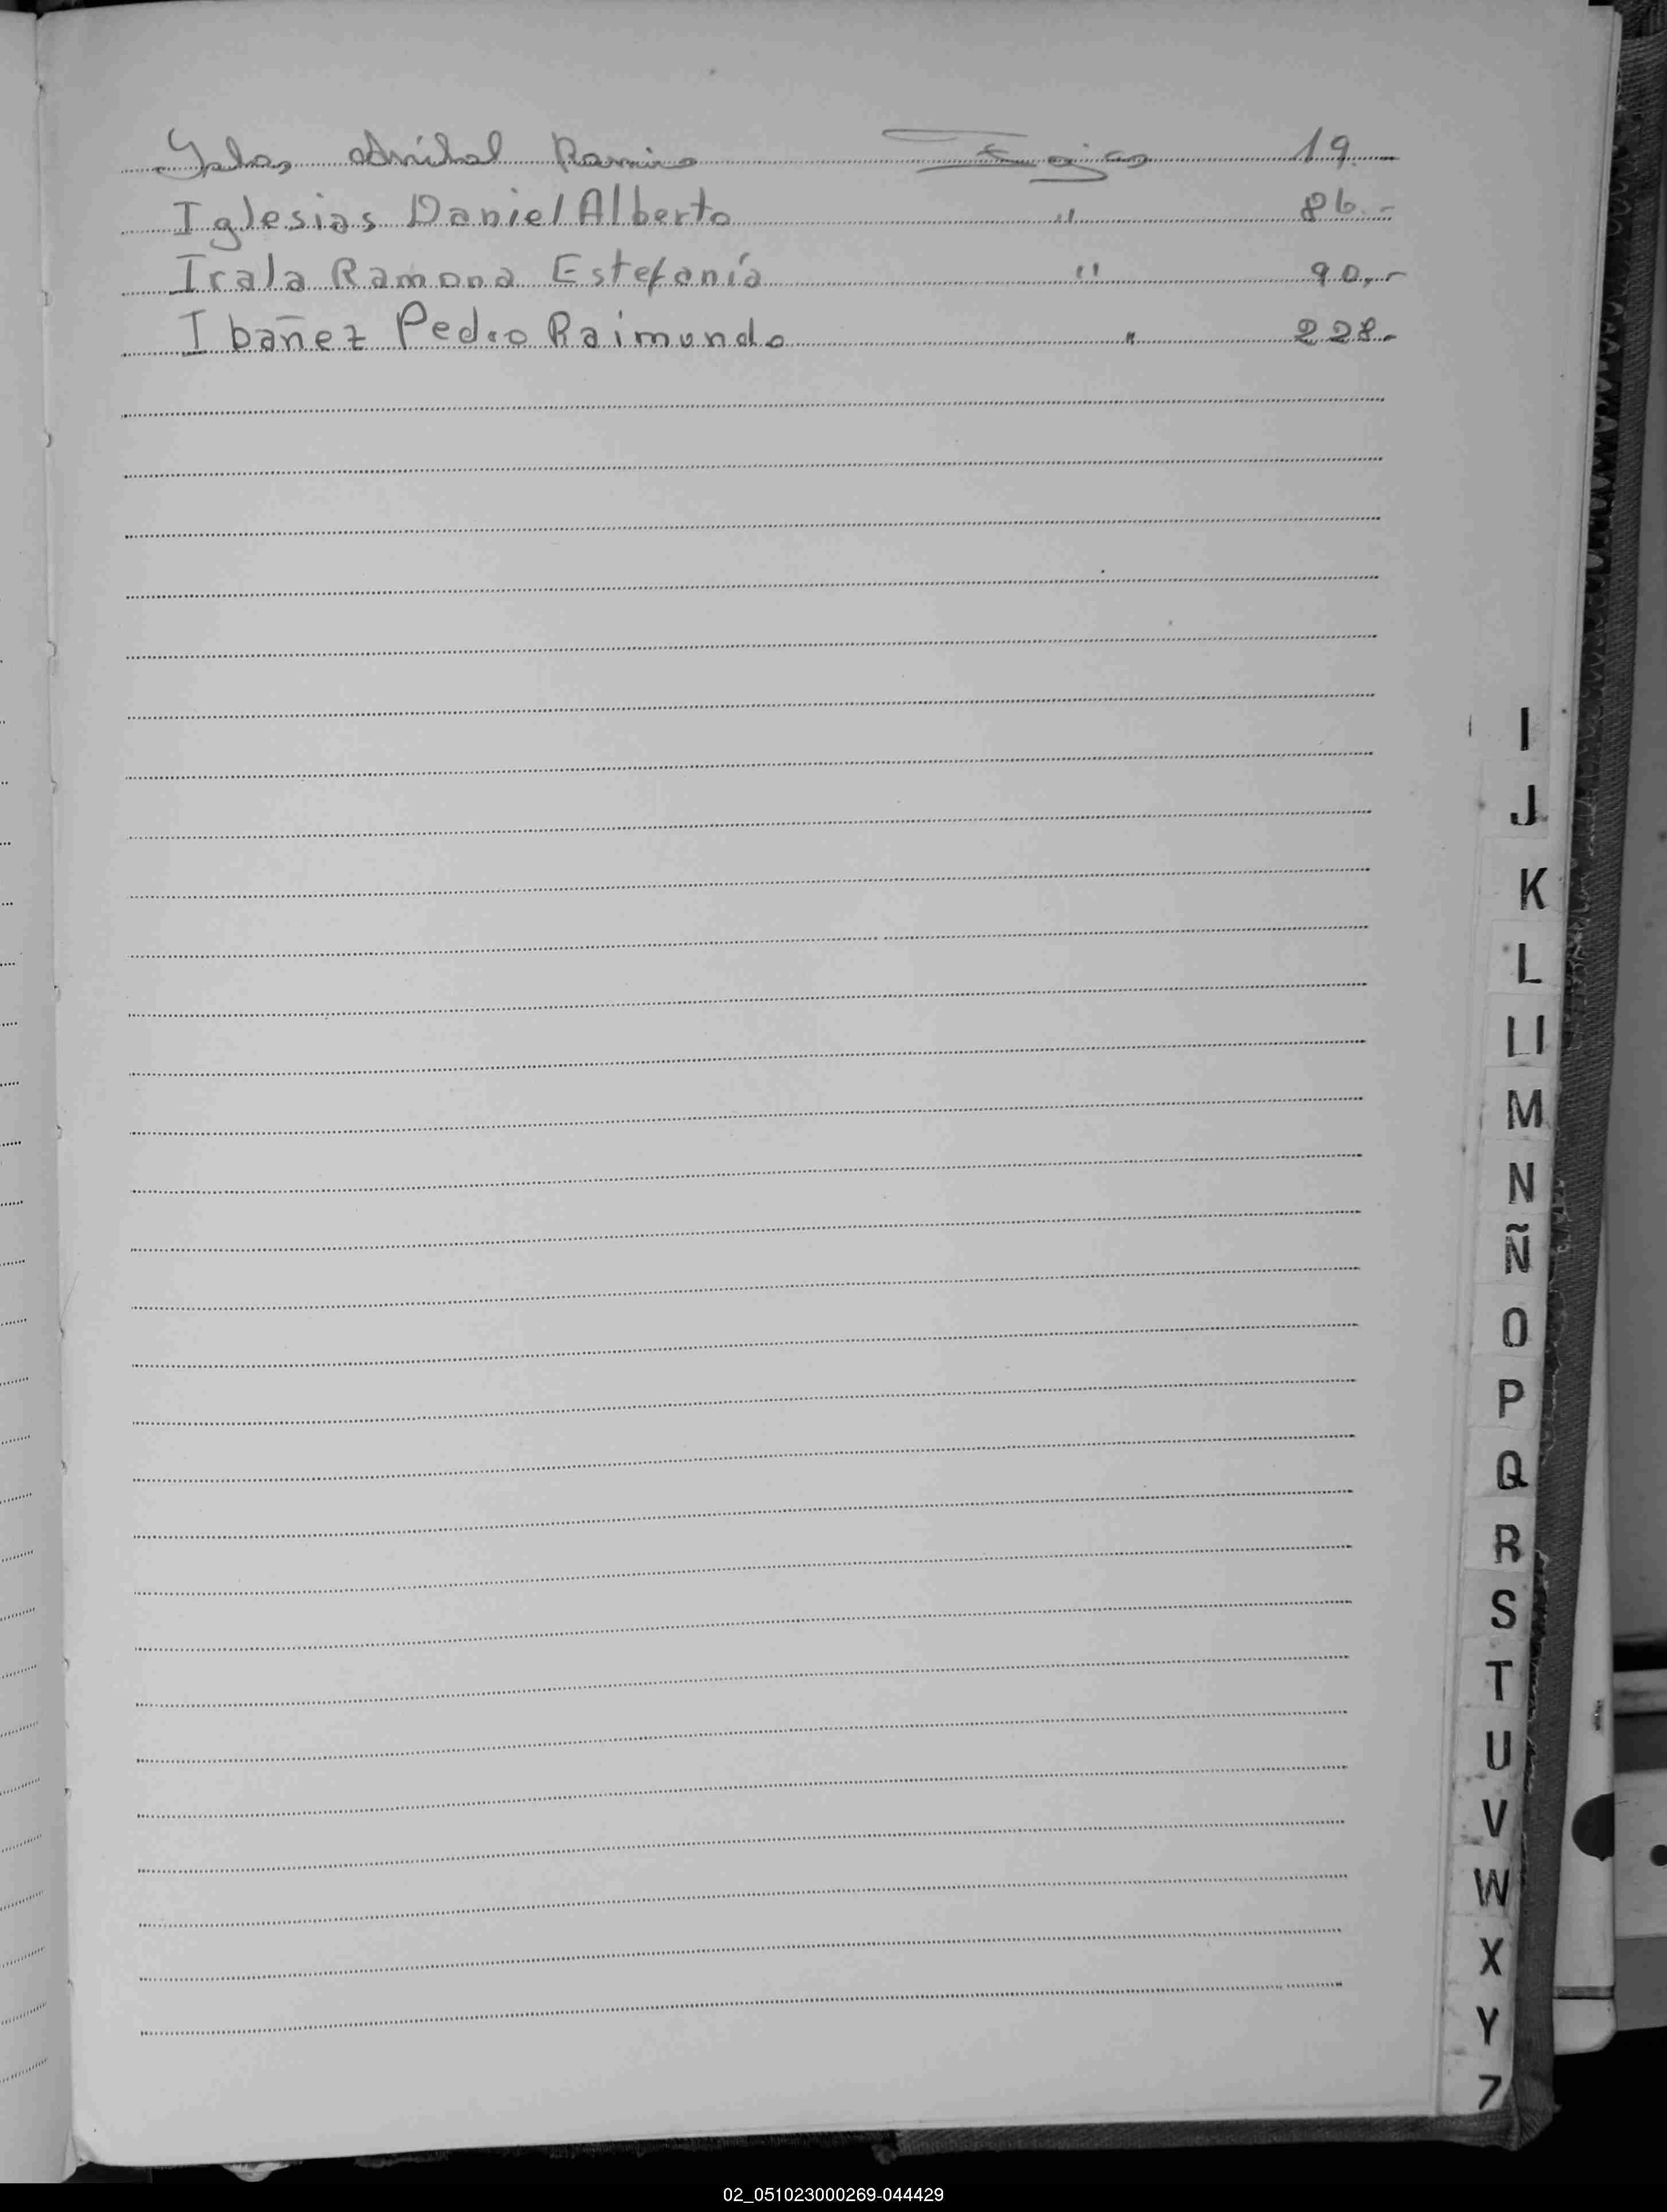 Anibal Ramiro Fojas 19.
Iglesias Daniel Alberto " 86.-
Irala Ramona Estefanía " 90,-
Ibañez Pedro Raimundo " 228.-
I
J
K
L
Ll
M
N
Ñ
O
P
Q
R
S
T
U
V
W
X
Y
Z
02_051023000269-044429